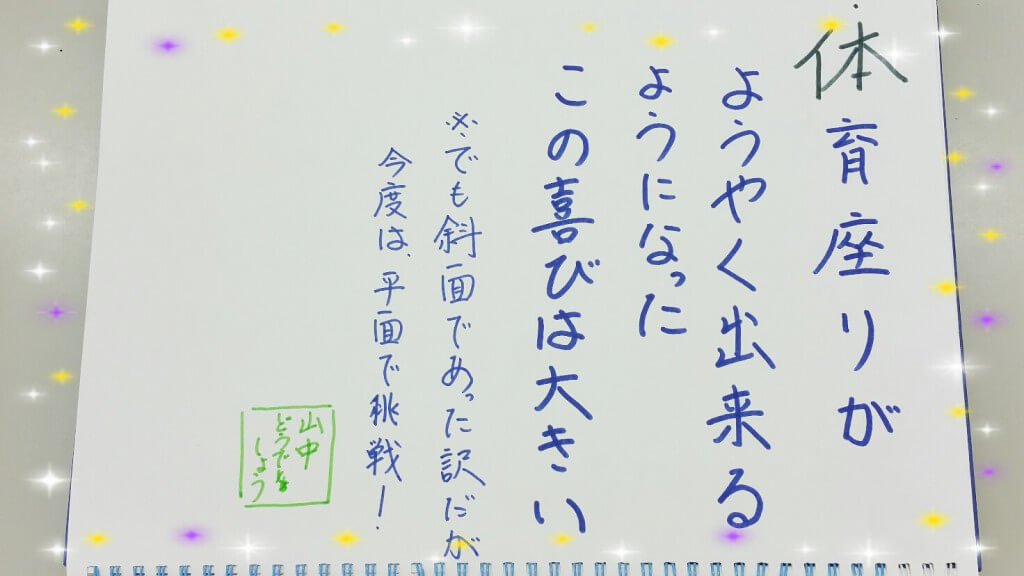 体育座りが
ようやく出来る
ようになった
この喜びは大きい
※でも斜面であった訳だが
今度は、平面で挑戦！
山中
どうでを
しょう